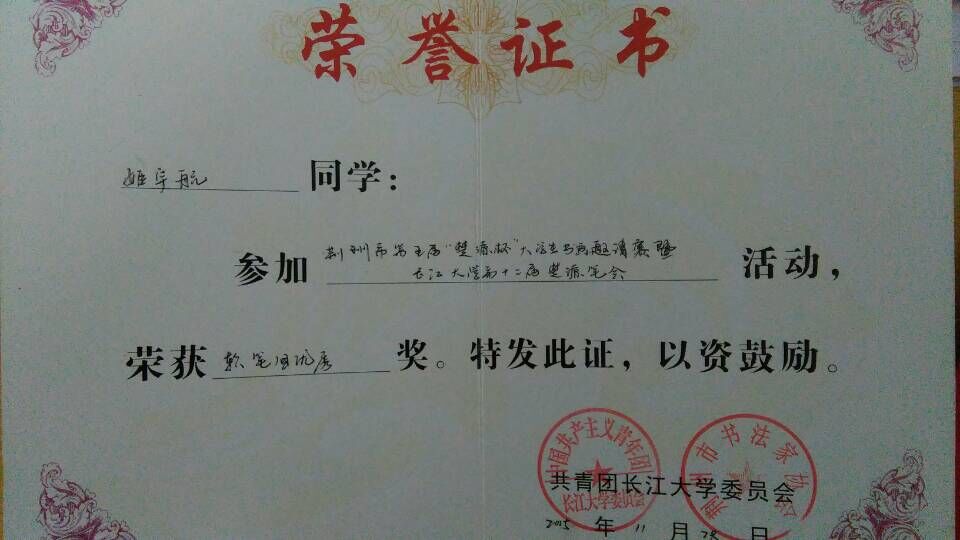 荣誉证书
姬宇航 同学：
参加 荆州市第五届“楚源杯”大学生书画邀请赛暨
长江大学第十二届楚源笔会 活动，
荣获 软笔组优秀 奖。特发此证，以资鼓励。
中国共产主义青年团
长江大学委员会
荆州市书法家协会
共青团长江大学委员会
2015 年 11 月 28 日